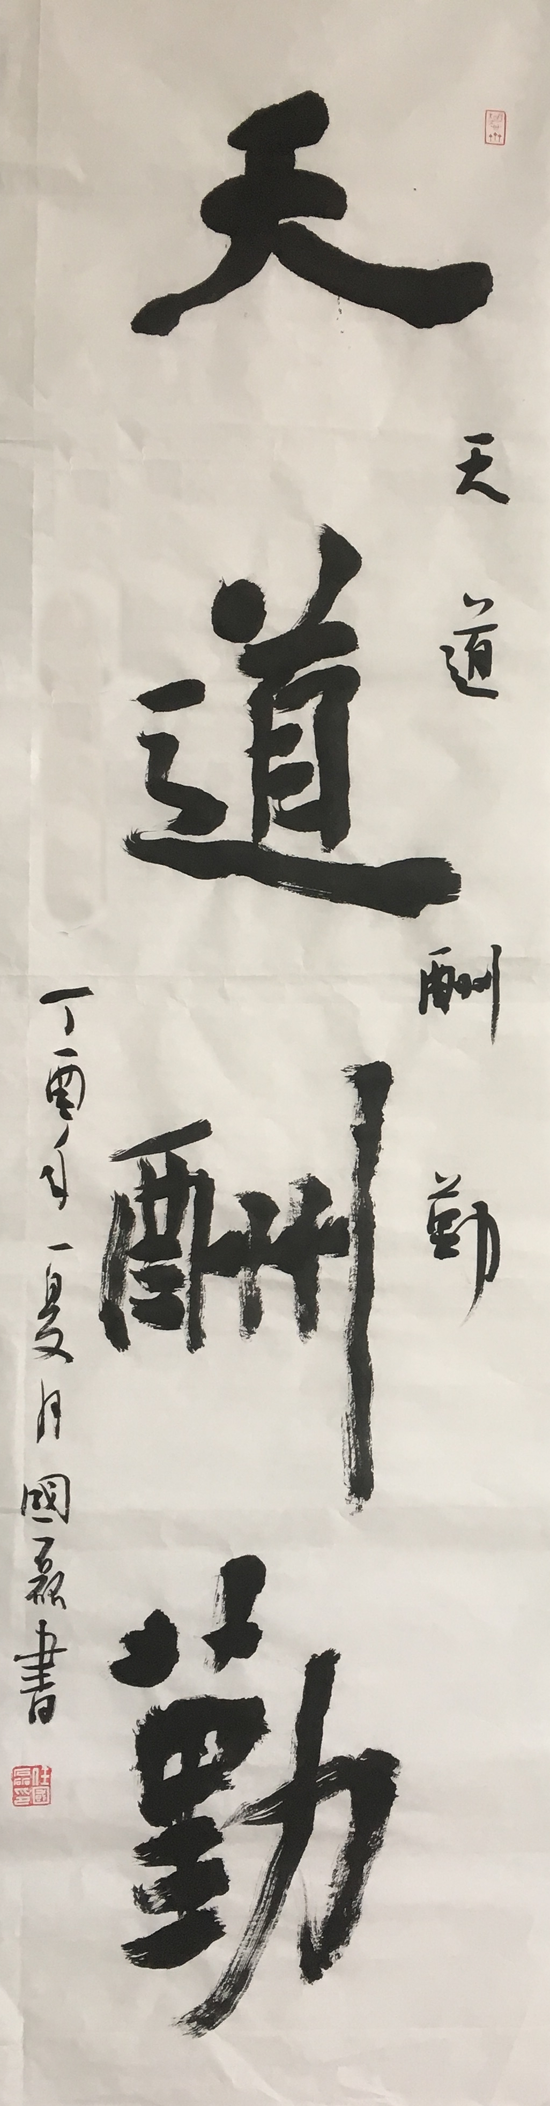 天道酬勤
天道酬勤
丁酉年夏月國磊書
任國磊印